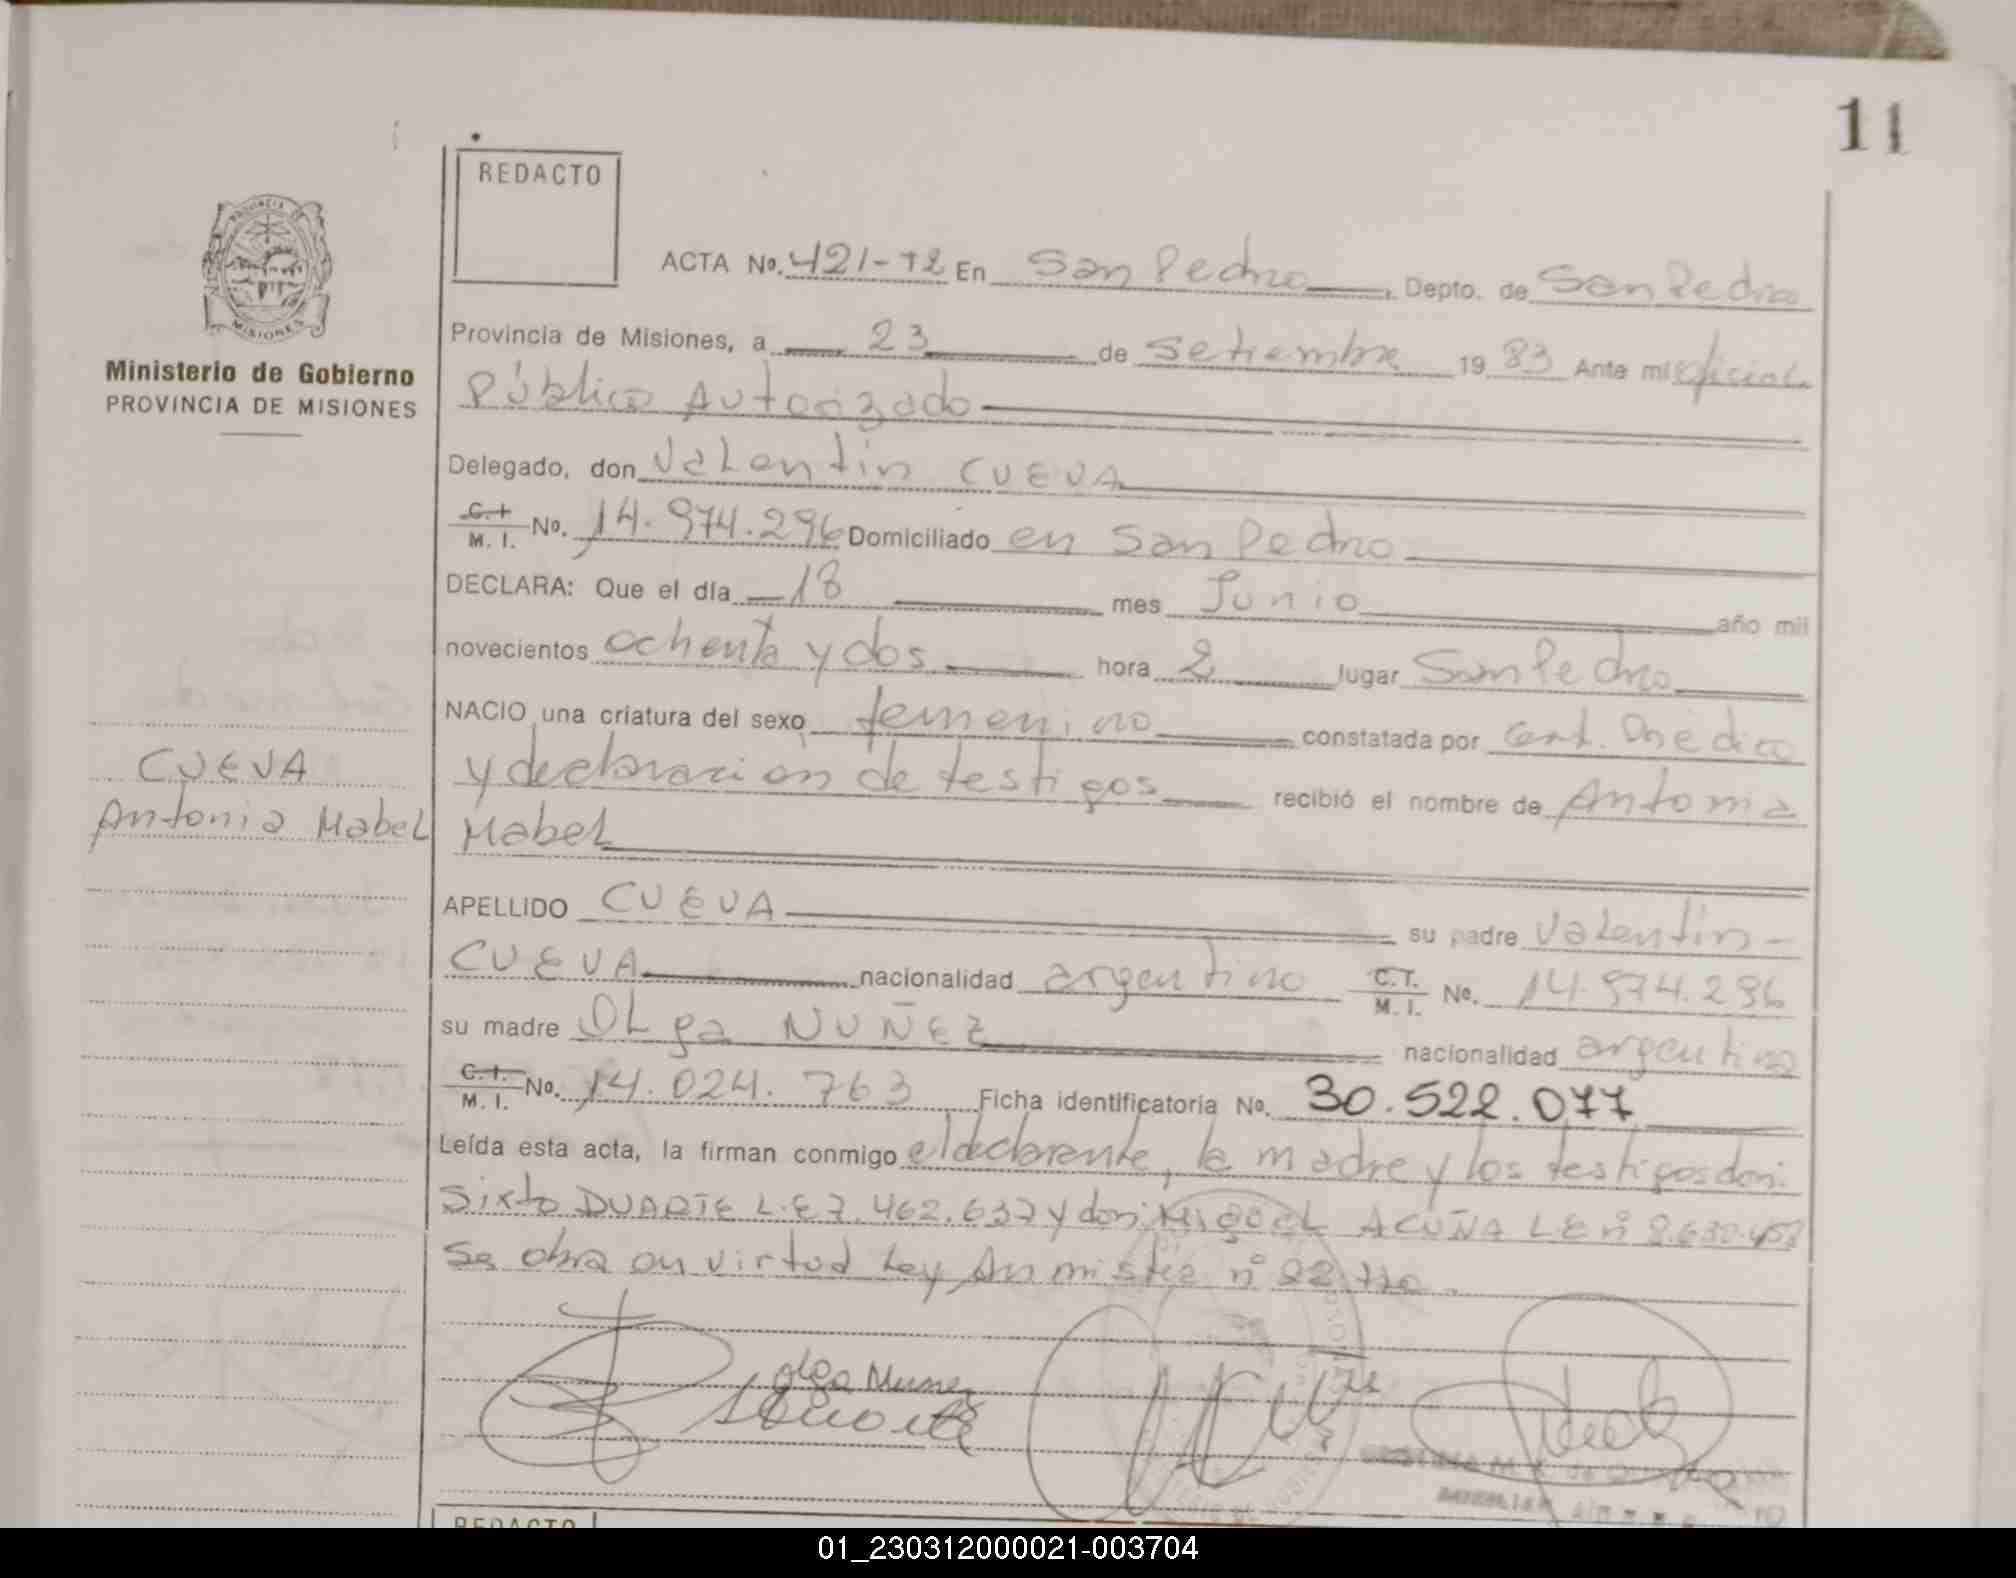 11
REDACTO
ACTA No. 421-T2 En San Pedro, Depto. de San Pedro
Ministerio de Gobierno
PROVINCIA DE MISIONES
Provincia de Misiones, a 23 de Setiembre 1983 Ante mi oficial
Público Autorizado
Delegado, don Valentin CUEVA
C.I. M. I. No. 14.974.296 Domiciliado en San Pedro
DECLARA: Que el día 18 mes Junio año mil
novecientos ochenta y dos hora 2 lugar San Pedro
NACIO una criatura del sexo femenino constatada por Cert. Médico
y declaracion de testigos recibió el nombre de Antonia
Mabel
CUEVA
Antonia Mabel
APELLIDO CUEVA su padre Valentin
CUEVA nacionalidad argentino C.I. M. I. No. 14.974.296
su madre Olga NUÑEZ nacionalidad argentina
C.I. M. I. No. 14.024.763 Ficha identificatoria No. 30.522.077
Leída esta acta, la firman conmigo el declarante, la madre y los testigos don:
Sixto DUARTE L.E 7.462.637 y don: Miguel ACUÑA L E nº
Se obra en virtud Ley Amnistia nº
Olga Nuñez
REDACTO
01_230312000021-003704